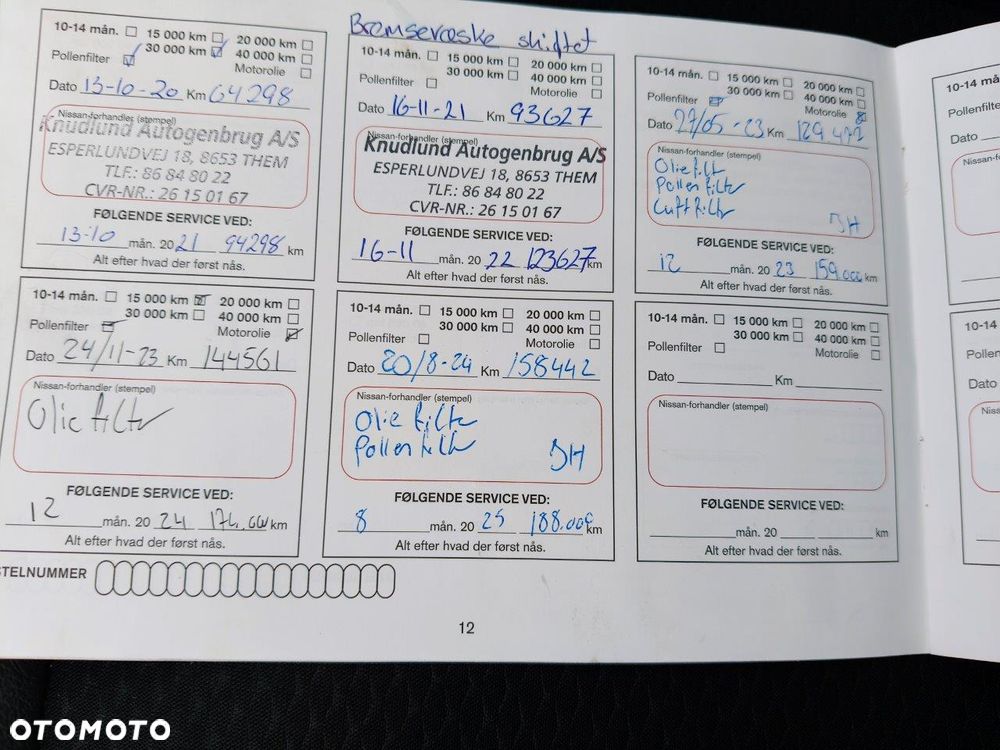 Bremsevæske skiftet
10-14 mån. 15 000 km 20 000 km
30 000 km 40 000 km
Pollenfilter Motorolie
Dato 13-10-20 Km 64298
Nissan-forhandler (stempel)
Knudlund Autogenbrug A/S
ESPERLUNDVEJ 18, 8653 THEM
TLF.: 86 84 80 22
CVR-NR.: 26 15 01 67
FØLGENDE SERVICE VED:
13-10 mån. 2021 94298 km
Alt efter hvad der først nås.
10-14 mån. 15 000 km 20 000 km
30 000 km 40 000 km
Pollenfilter Motorolie
Dato 16-11-21 Km 93627
Nissan-forhandler (stempel)
Knudlund Autogenbrug A/S
ESPERLUNDVEJ 18, 8653 THEM
TLF.: 86 84 80 22
CVR-NR.: 26 15 01 67
FØLGENDE SERVICE VED:
16-11 mån. 2022 123627 km
Alt efter hvad der først nås.
10-14 mån. 15 000 km 20 000 km
30 000 km 40 000 km
Pollenfilter Motorolie
Dato 27/05-23 Km 129.472
Nissan-forhandler (stempel)
Oliefilt
Pollenfilter
Luftfilter
JH
FØLGENDE SERVICE VED:
12 mån. 2023 159.000 km
Alt efter hvad der først nås.
10-14 mån. 15 000 km 20 000 km
30 000 km 40 000 km
Pollenfilter Motorolie
Dato 24/11-23 Km 144561
Nissan-forhandler (stempel)
Olie filter
FØLGENDE SERVICE VED:
12 mån. 2024 174.000 km
Alt efter hvad der først nås.
10-14 mån. 15 000 km 20 000 km
30 000 km 40 000 km
Pollenfilter Motorolie
Dato 20/8-24 Km 158442
Nissan-forhandler (stempel)
Olie filter
Pollen filter
JH
FØLGENDE SERVICE VED:
8 mån. 2025 188.000 km
Alt efter hvad der først nås.
10-14 mån. 15 000 km 20 000 km
30 000 km 40 000 km
Pollenfilter Motorolie
Dato Km
Nissan-forhandler (stempel)
FØLGENDE SERVICE VED:
mån. 20 km
Alt efter hvad der først nås.
STELNUMMER
12
10-14 må
Pollenfilte
Dato
Nissan-f
10-14
Pollen
Dato
Niss
Al
OTOMOTO